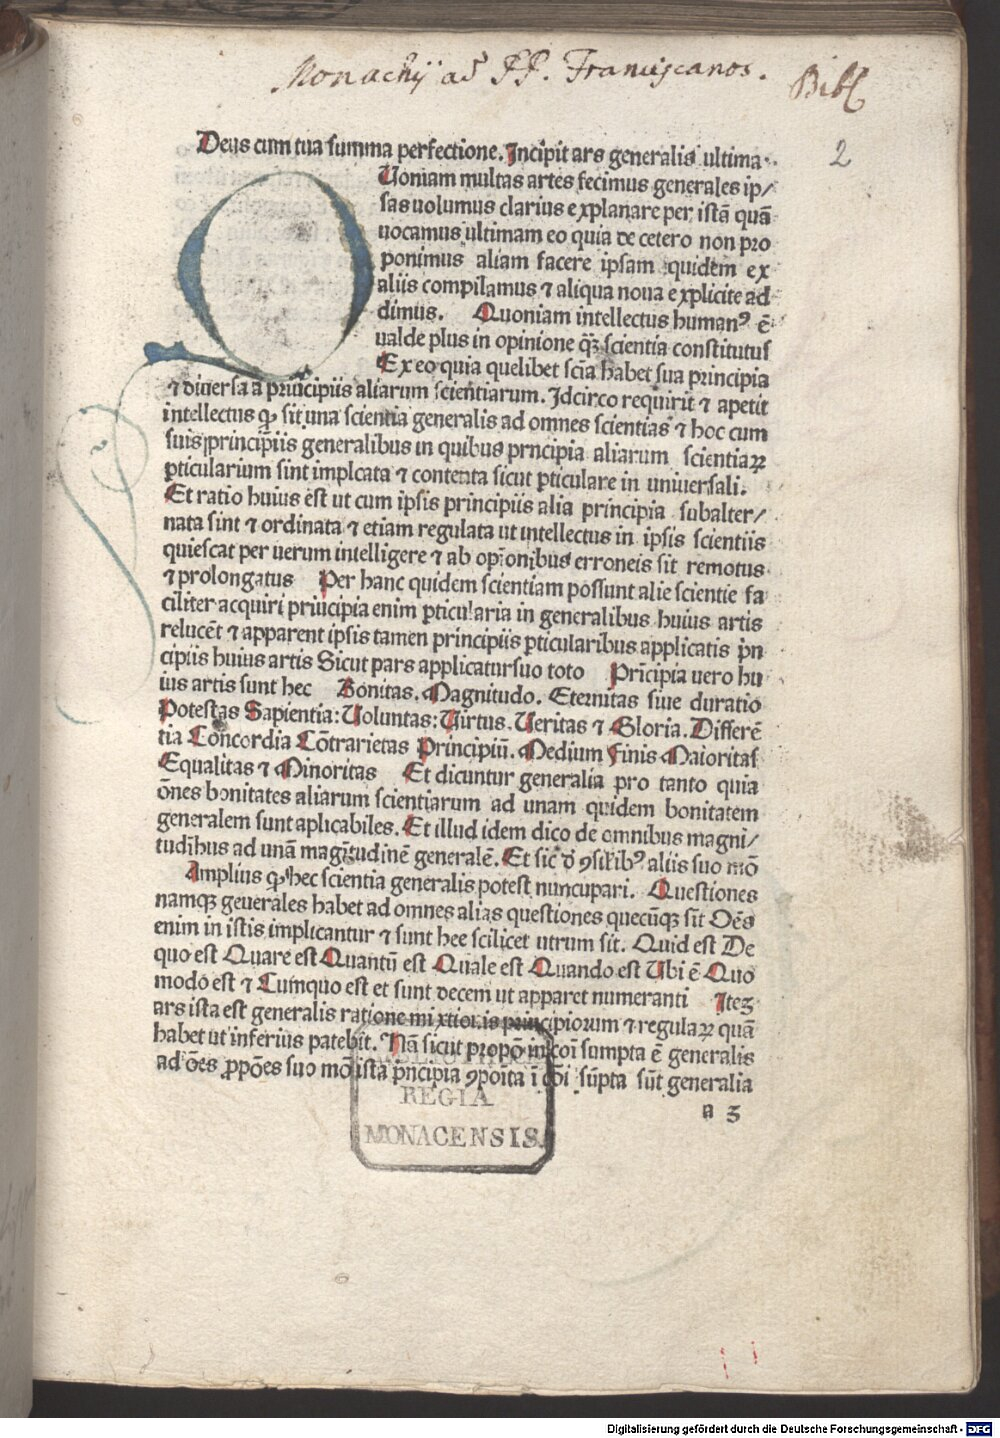 Monachÿ ad PP. Franciscanos.
Bibl
2
Deus cum tua summa perfectione. Incipit ars generalis ultima.
Quoniam multas artes fecimus generales ip/
sas uolumus clarius explanare per istã quã
uocamus ultimam eo quia de cetero non pro
ponimus aliam facere ipsam quidem ex
aliis compilamus ⁊ aliqua noua explicite ad
dimus. Quoniam intellectus humanꝰ ẽ
ualde plus in opinione q̃ꝫ scientia constitutus
Ex eo quia quelibet scĩa habet sua principia
⁊ diuersa a principiis aliarum scientiarum. Idcirco requirit ⁊ apetit
intellectus ꝙ sit una scientia generalis ad omnes scientias ⁊ hoc cum
suis principiis generalibus in quibus prncipia aliarum scientiaꝝ
ꝑticularium sint implcata ⁊ contenta sicut ꝑticulare in uniuersali.
Et ratio huius est ut cum ipsis principiis alia principia subalter/
nata sint ⁊ ordinata ⁊ etiam regulata ut intellectus in ipsis scientiis
quiescat per uerum intelligere ⁊ ab opĩonibus erroneis sit remotus
⁊ prolongatus Per hanc quidem scientiam possunt alie scientie fa
ciliter acquiri priucipia enim ꝑticularia in generalibus huius artis
relucẽt ⁊ apparent ipsis tamen principiis ꝑticularibus applicatis p̃n
cipiis huius artis Sicut pars applicatur suo toto Prĩcipia uero hu
ius artis sunt hec Bonitas. Magnitudo. Eternitas siue duratio
Potestas Sapientia: Uoluntas: Uirtus. Ueritas ⁊ Gloria. Differẽ
tia Concordia Cõtrarietas Principiũ. Medium Finis Maioritas
Equalitas ⁊ Minoritas Et dicuntur generalia pro tanto quia
õnes bonitates aliarum scientiarum ad unam quidem bonitatem
generalem sunt aplicabiles. Et illud idem dico de omnibus magni/
tudĩbus ad unã magĩtudinẽ generalẽ. Et sic đ ꝯsĩlibꝰ aliis suo mõ
Amplius ꝙ hec scientia generalis potest nuncupari. Questiones
namqꝫ geuerales habet ad omnes alias questiones quecũqꝫ sĩt Oẽs
enim in istis implicantur ⁊ sunt hee scilicet utrum sit. Quid est De
quo est Quare est Quantũ est Quale est Quando est Ubi ẽ Quo
modo est ⁊ Cumquo est et sunt decem ut apparet numeranti Iteꝫ
ars ista est generalis ratione mixtionis principiorum ⁊ regulaꝝ quã
habet ut inferius patebit. Nã sicut propõ in cõi sumpta ẽ generalis
ad õẽs ꝓpõẽs suo mõ ista p̃ncipia ꝯpõita ĩ cõi sũpta sũt generalia
a 3
REGIA
MONACENSIS.
Digitalisierung gefördert durch die Deutsche Forschungsgemeinschaft - DFG